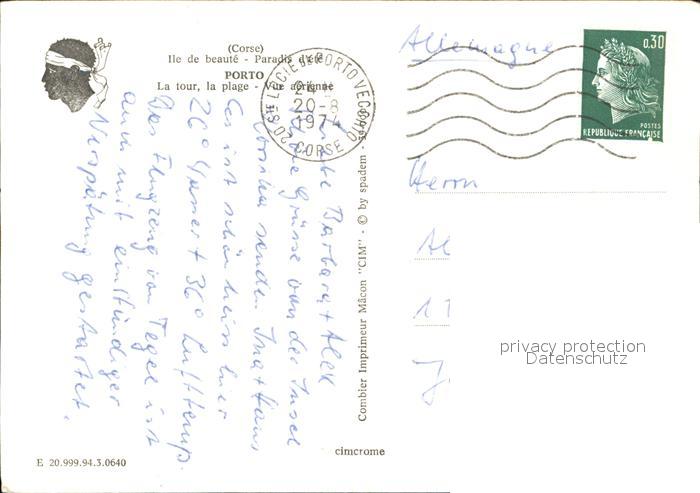 (Corse)
Ile de beauté - Paradis d'été
PORTO
La tour, la plage - Vue aérienne
20 Ste LUCIE DE PORTO VECCHIO
20-8
1974
CORSE
Allemagne
0,30
POSTES
REPUBLIQUE FRANÇAISE
Liebe Barbara + Alex
Grüsse von der Insel
Corsika senden Inga + Hans
Es ist schön heiss hier
26° Wasser + 36° Lufttemp.
Das Flugzeug von Tegel ist
auch mit einstündiger
Verspätung gestartet.
Herrn
Al
privacy protection
Datenschutz
Combier Imprimeur Mâcon "CIM" - © by spadem
cimcrome
E 20.999.94.3.0640